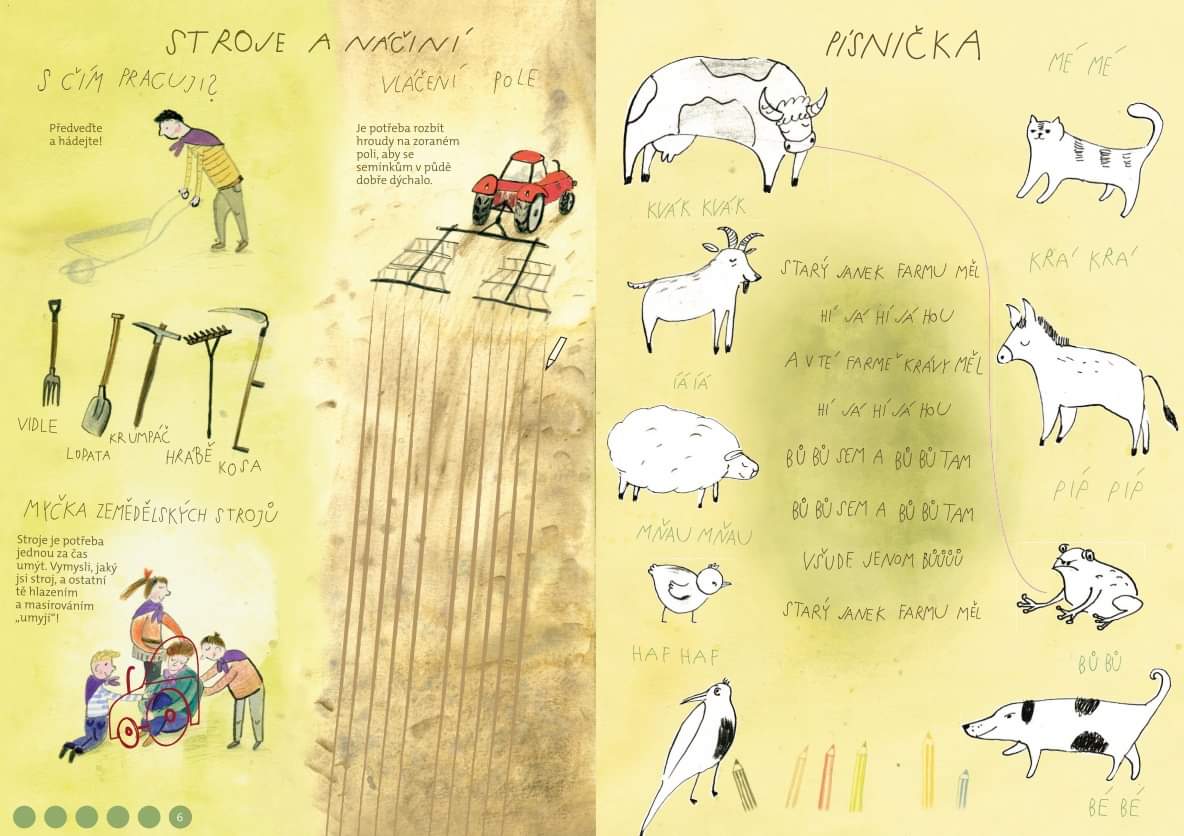 STROJE A NÁČINÍ
S ČÍM PRACUJI?
Předveďte
a hádejte!
VIDLE
LOPATA
KRUMPÁČ
HRÁBĚ
KOSA
MYČKA ZEMĚDĚLSKÝCH STROJŮ
Stroje je potřeba
jednou za čas
umýt. Vymysli, jaký
jsi stroj, a ostatní
tě hlazením
a masírováním
„umyjí“!
6
VLÁČENÍ POLE
Je potřeba rozbít
hroudy na zoraném
poli, aby se
semínkům v půdě
dobře dýchalo.
PÍSNIČKA
KVÁK KVÁK
ÍÁ ÍÁ
MŇAU MŇAU
HAF HAF
STARÝ JANEK FARMU MĚL
HÍ JÁ HÍ JÁ HOU
A V TÉ FARMĚ KRÁVY MĚL
HÍ JÁ HÍ JÁ HOU
BŮ BŮ SEM A BŮ BŮ TAM
BŮ BŮ SEM A BŮ BŮ TAM
VŠUDE JENOM BŮŮŮŮ
STARÝ JANEK FARMU MĚL
MÉ MÉ
KRÁ KRÁ
PÍP PÍP
BŮ BŮ
BÉ BÉ